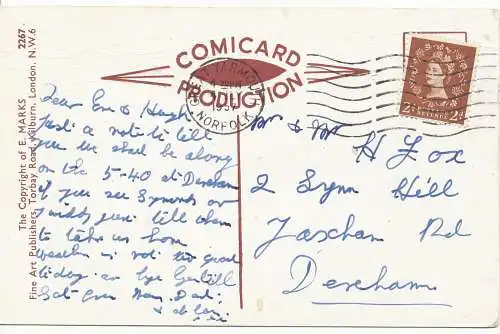 2267
The Copyright of E. MARKS
Fine Art Publishers, Torbay Road, Kilburn, London, N.W.6
COMICARD
PRODUCTION
YARMOUTH
NORFOLK
REVENUE
Dear Eric & Hugh
Just a note to tell
you we shall be along
on the 5-40 at Dereham
if you see Symonds or
just tell them
to take us home
weather is not too good
today. so bye
Sat Even Mam, Dad.
Mr & Mr
H Fox
2 Lynn Hill
Yaxham Rd
Dereham